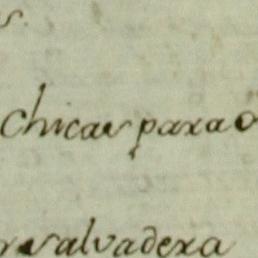 s.
Chicas para o
salvadera